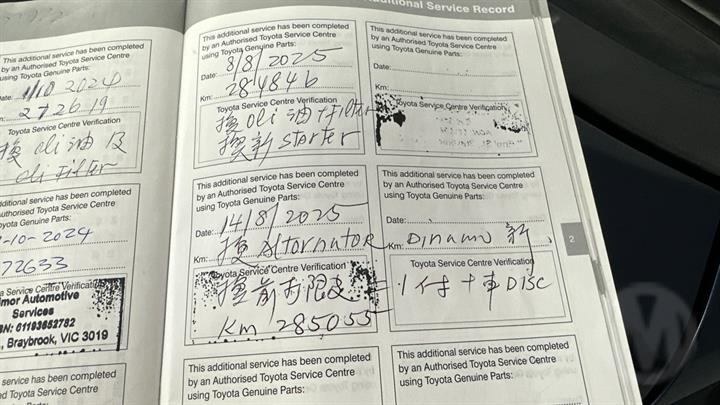 Additional Service Record
This additional service has been completed
by an Authorised Toyota Service Centre
using Toyota Genuine Parts:
Date: 1/10 2024
272619
Toyota Service Centre Verification
換 oli 油 及
oli Filter
This additional service has been completed
Authorised Toyota Service Centre
Toyota Genuine Parts:
-10-2024
72633
Service Centre Verification
mor Automotive
Services
BN: 61193652782
, Braybrook, VIC 3019
service has been completed
ed Toyota Service Centre
Genuine Parts:
This additional service has been completed
by an Authorised Toyota Service Centre
using Toyota Genuine Parts:
Date: 8/8/2025
Km: 284846
Toyota Service Centre Verification
換 oli 油 + Filter
換新 starter
This additional service has been completed
by an Authorised Toyota Service Centre
using Toyota Genuine Parts:
Date: 14/8/2025
Km: 換 Alternator Km: Dinamo 新
Toyota Service Centre Verification
換前 = 1 付 + 車 DISC
Km 285055
This additional service has been completed
by an Authorised Toyota Service Centre
using Toyota Genuine Parts:
This additional service has been completed
by an Authorised Toyota Service Centre
using Toyota Genuine Parts:
Date:
Km:
Toyota Service Centre Verification
This additional service has been completed
by an Authorised Toyota Service Centre
using Toyota Genuine Parts:
Date:
Toyota Service Centre Verification
2
This additional service has been completed
by an Authorised Toyota Service Centre
using Toyota Genuine Parts:
M